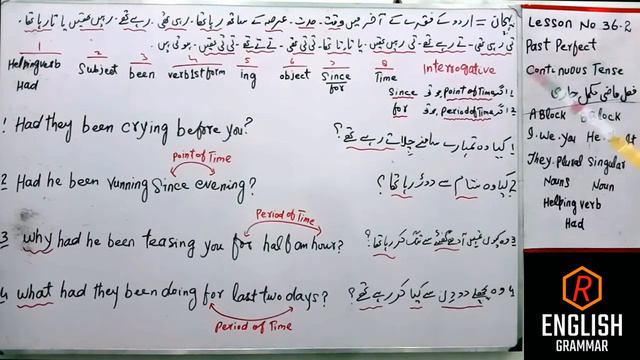 پہچان = اردو کے فقرے کے آخر میں وقت، مدت، عرصہ کے ساتھ رہا تھا، رہی تھی، رہے تھے، رہیں تھیں یا تا رہا تھا،
تی رہی تھی، تے رہے تھے، تی رہیں تھیں، یا تا تھا، تی تھی، تے تھے، تی تھیں، ہوتی ہیں
1 2 3 4 5 6 7 8
Helping verb Subject been verb 1st form ing object Since Time Interrogative
Had for
Since اگر Point of Time ہو تو
for اگر Period of Time ہو تو
1 Had they been crying before you?
1 کیا وہ تمہارے سامنے چلاتے رہے تھے؟
Point of Time
2 Had he been running Since evening?
2 کیا وہ شام سے دوڑ رہا تھا؟
Period of Time
3 why had he been teasing you for half an hour?
3 وہ کیوں تمہیں آدھے گھنٹے سے تنگ کر رہا تھا؟
4 what had they been doing for last two days?
4 وہ پچھلے دو دن سے کیا کر رہے تھے؟
Period of Time
Lesson No 36.2
Past Perfect
Continuous Tense
فعل ماضی مکمل جاری
A Block B Block
I. We. You He. It
They. plural Singular
Nouns Noun
Helping verb
Had
R
ENGLISH
GRAMMAR